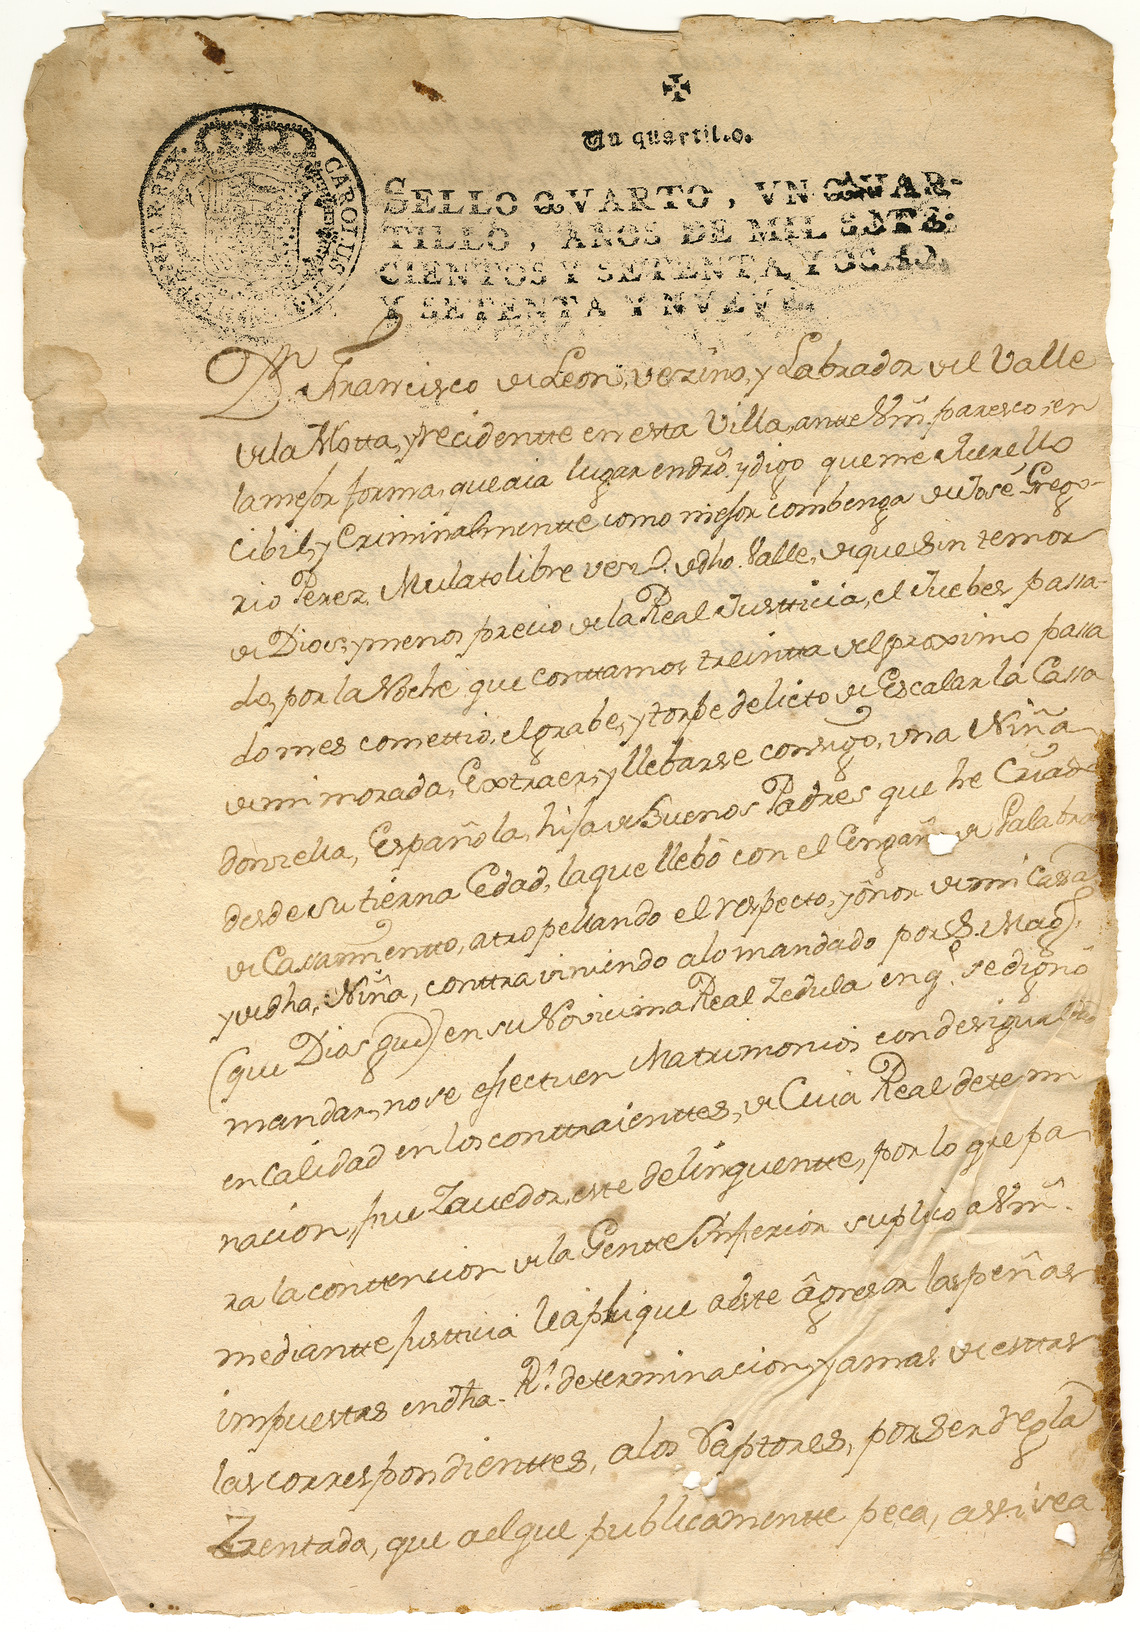 Un quartillo.
SELLO QVARTO, VN QVAR-
TILLO, AÑOS DE MIL SETE-
CIENTOS Y SETENTA Y OCHO,
Y SETENTA Y NVEVE.
CAROLUS III
Dn Francisco de Leon, vezino, y Labrador del Valle
de la Motta, y recidentte en esta Villa, antte Vm. paresco, en
la mejor forma, que aia lugar en dro. y digo que me querello
Cibil, y Criminalmentte como mejor combenga de José Grego-
rio Perez, Mulato libre vezo. de dho. Valle, de que sin temor
de Dios, y menos precio de la Real Justticia, el Juebes passa-
do, por la Noche que conttamos treintta del proximo passa
do mes comettio, el grabe, y torpe delicto de Escalar la Cassa
de mi morada, Extraer, y llebarse consigo, una Niña
donzella, Española, hija de Buenos Padres que he Criado
desde su tierna Edad, la que llebó con el Engaño de Palabra
de Casammentto, atropellando el respecto, y onor de mi Cassa
y de dha. Niña, conttraviniendo a lo mandado por S. Magd.
(que Dios gue) en su Novicima Real Zedula en q.e se dignó
mandar, no se efectuen Matrimonios con desigualdad
en Calidad en los conttraienttes, de Cuia Real determi
nacion, fue Zavedor, este delinquentte, por lo que pa
ra la conttencion de la Gentte Inferior suplico a Vm.
mediantte justticia le aplique a este agresor las peñas
impuestas en dha. Rl. determinacion, y a mas de esttas
las correspondienttes, a los Raptores, por ser regla
Zentada, que a el que publicamentte peca, assi sea